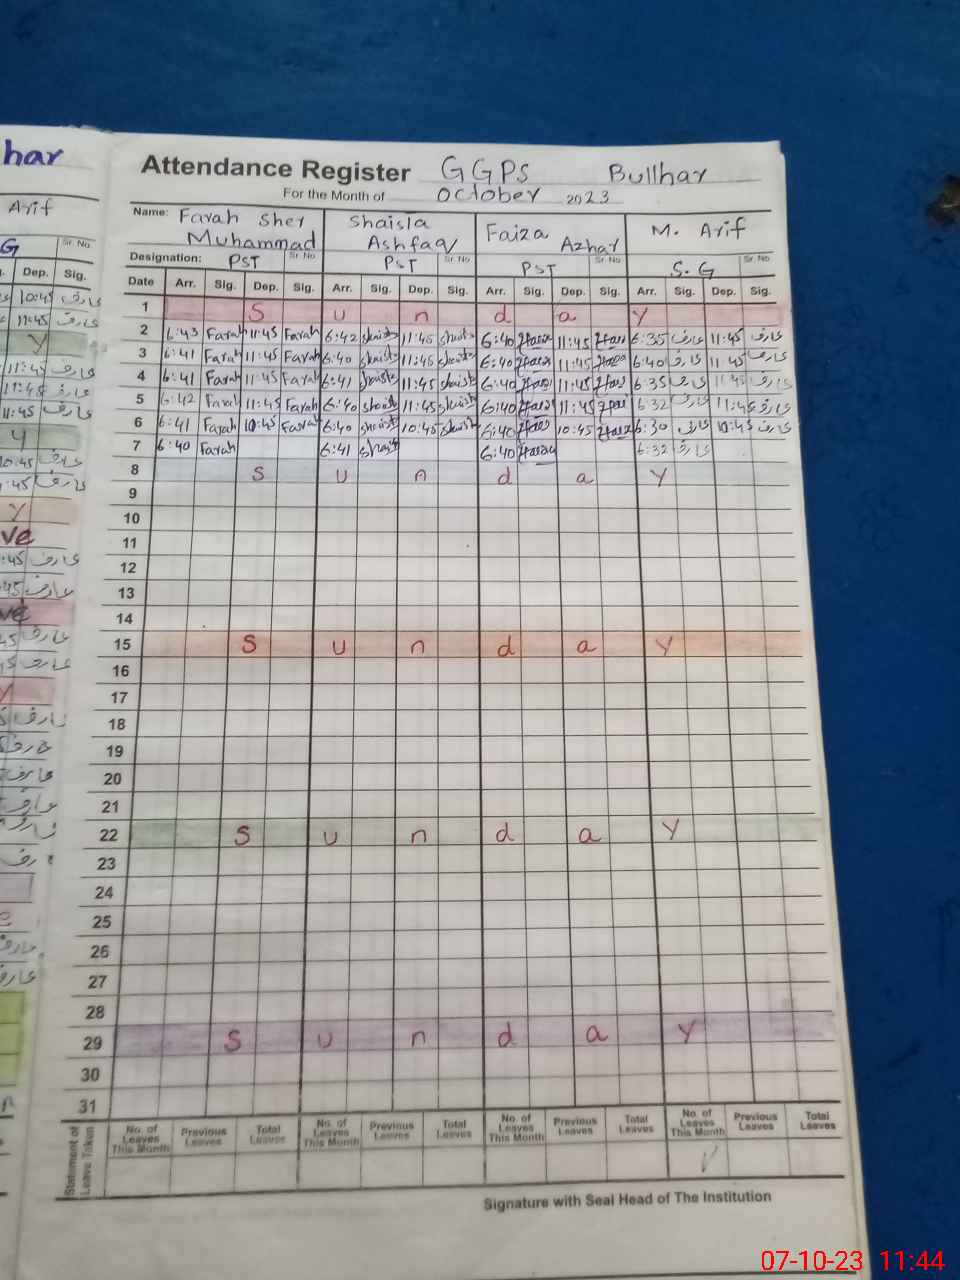 har
Arif
G
Sr. No.
Dep. Sig.
10:45 عارف
11:45 عارف
y
11:45 عارف
11:45 عارف
11:45 عارف
y
10:45 عارف
:45 عارف
y
ve
:45 عارف
:45 عارف
ve
عارف
عارف
y
Attendance Register GGPS Bullhar
For the Month of October 2023
Name: Farah Sher Muhammad Shaista Ashfaq Faiza Azhar M. Arif
Designation: PST Sr. No. PST Sr. No. PST Sr. No. S.G Sr. No.
Date Arr. Sig. Dep. Sig. Arr. Sig. Dep. Sig. Arr. Sig. Dep. Sig. Arr. Sig. Dep. Sig.
1 S u n d a y
2 6:43 Farah 11:45 Farah 6:42 Shaista 11:45 Shaista 6:40 11:45 6:35 عارف 11:45 عارف
3 6:41 Farah 11:45 Farah 6:40 Shaista 11:45 Shaista 6:40 11:45 6:40 عارف 11:45 عارف
4 6:41 Farah 11:45 Farah 6:41 Shaista 11:45 Shaista 6:40 11:45 6:35 عارف 11:45 عارف
5 6:42 Farah 11:45 Farah 6:40 Shaista 11:45 Shaista 6:40 11:45 6:32 عارف 11:45 عارف
6 6:41 Farah 10:45 Farah 6:40 Shaista 10:45 Shaista 6:40 10:45 6:30 عارف 10:45 عارف
7 6:40 Farah 6:41 Shaista 6:40 6:32 عارف
8 S u n d a y
9
10
11
12
13
14
15 S u n d a y
16
17
18
19
20
21
22 S u n d a y
23
24
25
26
27
28
29 S u n d a y
30
31
Statement of Leave Taken
No. of Leaves This Month Previous Leaves Total Leaves No. of Leaves This Month Previous Leaves Total Leaves No. of Leaves This Month Previous Leaves Total Leaves No. of Leaves This Month Previous Leaves Total Leaves
Signature with Seal Head of The Institution
07-10-23 11:44